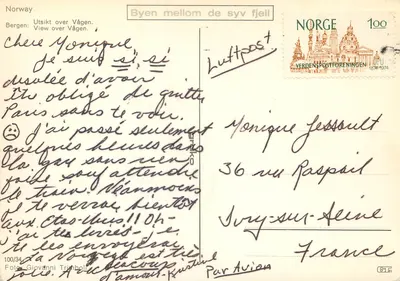 Norway
Bergen: Utsikt over Vågen.
View over Vågen.
Byen mellom de syv fjell
NORGE 1.00
VERDENSPOSTFORENINGEN
Luftpost
Chere Monique
Je suis si, si
désolée d'avoir
été obligé de quitter
Paris sans te voir.
J'ai passé seulement
quelques heures dans
la gare sans rien
faire sauf attendre
le train. Néanmoins
je te verrai bientôt
aux Etas-Unis!! Oh-
j'ai tes livres - je
te les envoyerai
La Norvège est très
jolie.
Beaucoup
d'amour-
Monique Lessault
36 rue Raspail
Ivry-sur-Seine
France
Par Avion
100/34
Foto: Giovanni Trimboli